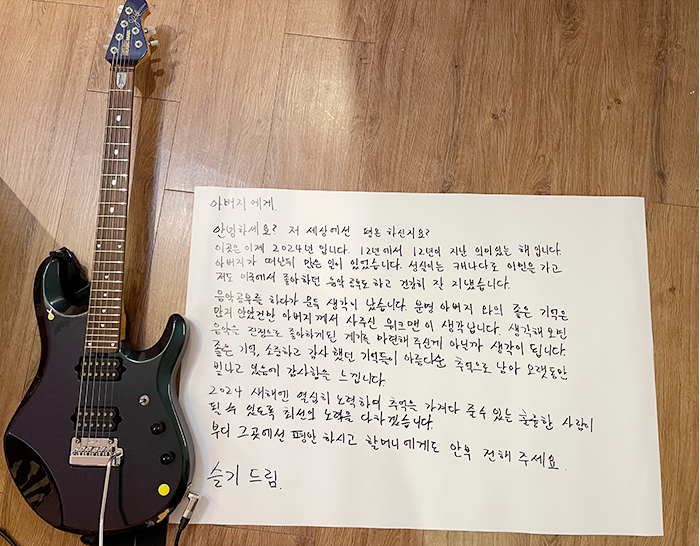 아버지에게.
안녕하세요? 저 세상에선 편온 하신지요?
이곳은 이제 2024년 입니다. 12년에서 12년이 지난 의미있는 해 입니다.
아버지가 떠난뒤 많은 일이 있었습니다. 성실이는 캐나다로 이민을 가고
저도 미국에서 좋아하던 음악 공부도 하고 건강히 잘 지냈습니다.
음악공부를 하다가 문득 생각이 났습니다. 분명 아버지 와의 좋은 기억은
많지 않았건만 아버지 께서 사주신 워크맨 이 생각납니다. 생각해 보면
음악을 진정으로 좋아하게된 계기를 마련해 주신게 아닐까 생각이 됩니다.
좋은 기억, 소중하고 감사 했던 기억들이 아름다운 추억으로 남아 오랫동안
빛나고 있음에 감사함을 느낍니다.
2024 새해엔 열심히 노력하여 추억을 가져다 줄수 있는 훌륭한 사람이
될 수 있도록 최선의 노력을 다하겠습니다.
부디 그곳에선 평안 하시고 할머니에게도 안부 전해 주세요.
슬기 드림.